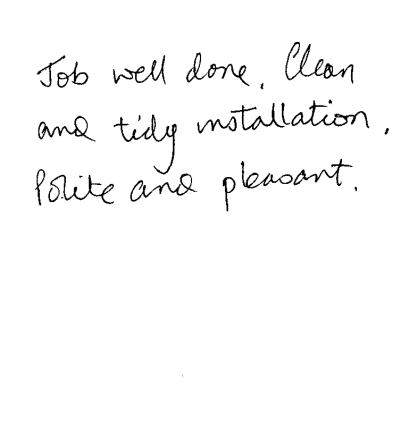 Job well done. Clean
and tidy installation.
Polite and pleasant.